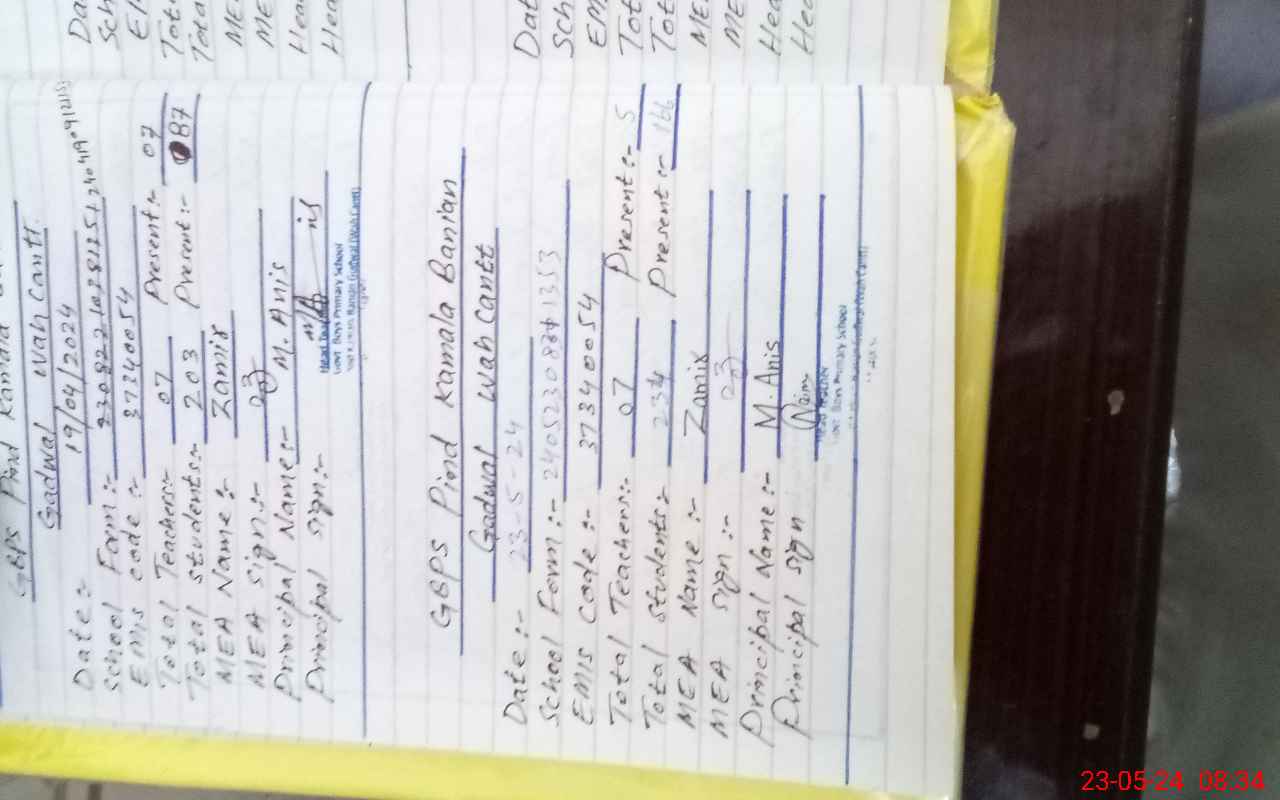 GBPS Pind Kamala
Gadwal Wah Cantt.
Date:- 19/04/2024
School Form:-
EMIS code:- 37340054
Total Teachers:- 07 Present:- 07
Total students:- 203 Present:- 187
MEA Name:- Zamir
MEA sign:-
Principal Name:- M. Anis
Principal sign:-
Head Teacher
Govt. Boys Primary School
GBPS Pind Kamala Banian
Gadwal Wah Cantt
Date:- 23-5-24
School Form:-
EMIS Code:- 37340054
Total Teachers:- 07 Present:- 5
Total Students:- 234 Present:- 166
MEA Name:- Zamir
MEA sign:-
Principal Name:- M. Anis
Principal sign
Head Teacher
Govt. Boys Primary School
Dat
Sch
EM
Tot
Tota
ME
ME
Hea
Hea
Dat
Sch
EM
Tot
Tot
ME
ME
Hea
Hea
23-05-24 08:34